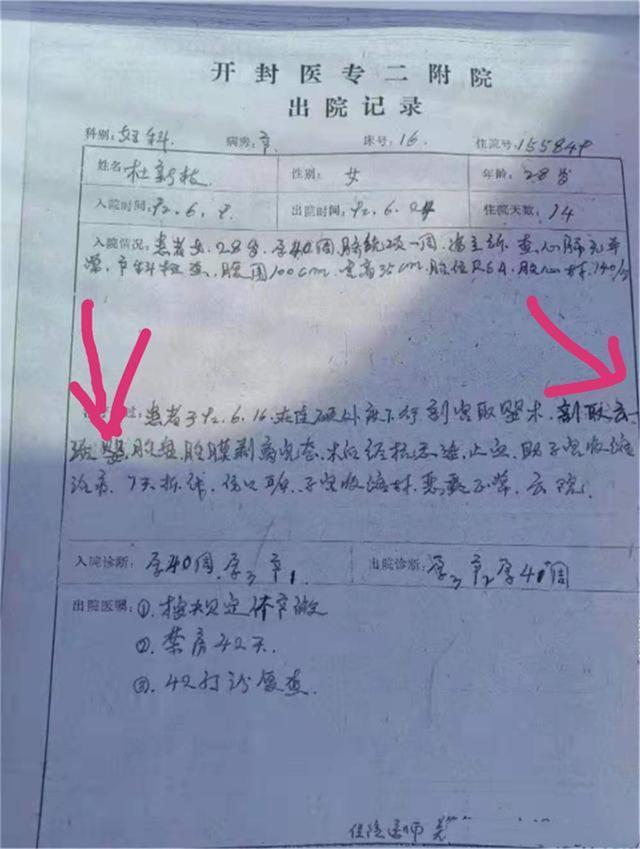 开封医专二附院
出院记录
科别:妇科 病房:产 床号:16 住院号:155849
姓名:杜新枝 性别:女 年龄:28岁
入院时间:92.6.9 出院时间:92.6.24 住院天数:14
入院情况:患者女,28岁,孕40周 一周,
产科检查,腹围100cm,宫高35cm,胎位RSA,胎心好,140/分
过:患者于92.6.16.在连硬外麻下行剖宫取婴术,剖取
婴,胎盘,胎膜剥离完态,术后给抗炎,止血,助子宫收缩
治疗,7天拆线,子宫收缩好,恶露不
入院诊断:孕40周,孕3产1 出院诊断:孕3产2孕40周
出院医嘱:①.按规定休产假
②.禁房42天.
③.复查.
住院医师